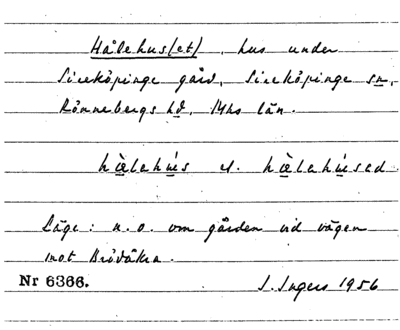 Hålehus(et), hus under
Sireköpinge gård, Sireköpinge sn,
Rönnebergs hd, Mhs län.
hæ̀lahús el. hæ̀lahúsəd
Läge: n.o. om gården vid vägen
mot Brödåkra.
Nr 6366.
I. Ingers 1956